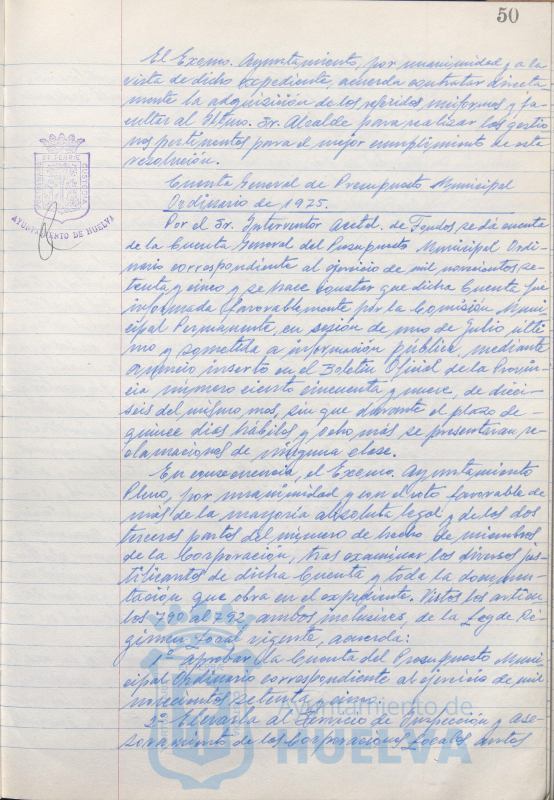 50
El Excmo. Ayuntamiento, por unanimidad y a la
vista de dicho expediente, acuerda contratar directa
mente la adquisición de los referidos uniformes y fa-
cultar al Iltmo. Sr. Alcalde para realizar las gestio
nes pertinentes para el mejor cumplimiento de esta
resolución.
Cuenta General de Presupuesto Municipal
Ordinario de 1975.
Por el Sr. Interventor Acctal. de Fondos se dá cuenta
de la Cuenta General del Presupuesto Municipal Ordi-
nario correspondiente al ejercicio de mil novecientos se-
tenta y cinco y se hace constar que dicha Cuenta fué
informada favorablemente por la Comisión Muni
cipal Permanente, en sesión de uno de Julio últi
mo y sometida a información pública, mediante
anuncio inserto en el Boletín Oficial de la Provin-
cia número ciento cincuenta y nueve, de dieci-
seis del mismo mes, sin que durante el plazo de-
quince días hábiles y ocho más se presentaran re-
clamaciones de ninguna clase.
En consecuencia, el Excmo. Ayuntamiento
Pleno, por unanimidad y con el voto favorable de
más de la mayoría absoluta legal y de los dos
terceras partes del número de hecho de miembros
de la Corporación, tras examinar los diversos jus-
tificantes de dicha Cuenta y toda la documen-
tación que obra en el expediente. Vistos los artícu
los 790 al 792, ambos inclusives, de la Ley de Ré-
gimen Local vigente, acuerda:
1º Aprobar la Cuenta del Presupuesto Muni-
cipal Ordinario correspondiente al ejercicio de mil
novecientos setenta y cinco.
2º Elevarla al Servicio de Inspección y ase-
soramiento de las Corporaciones Locales antes
AYUNTAMIENTO DE HUELVA
Ayuntamiento de
HUELVA